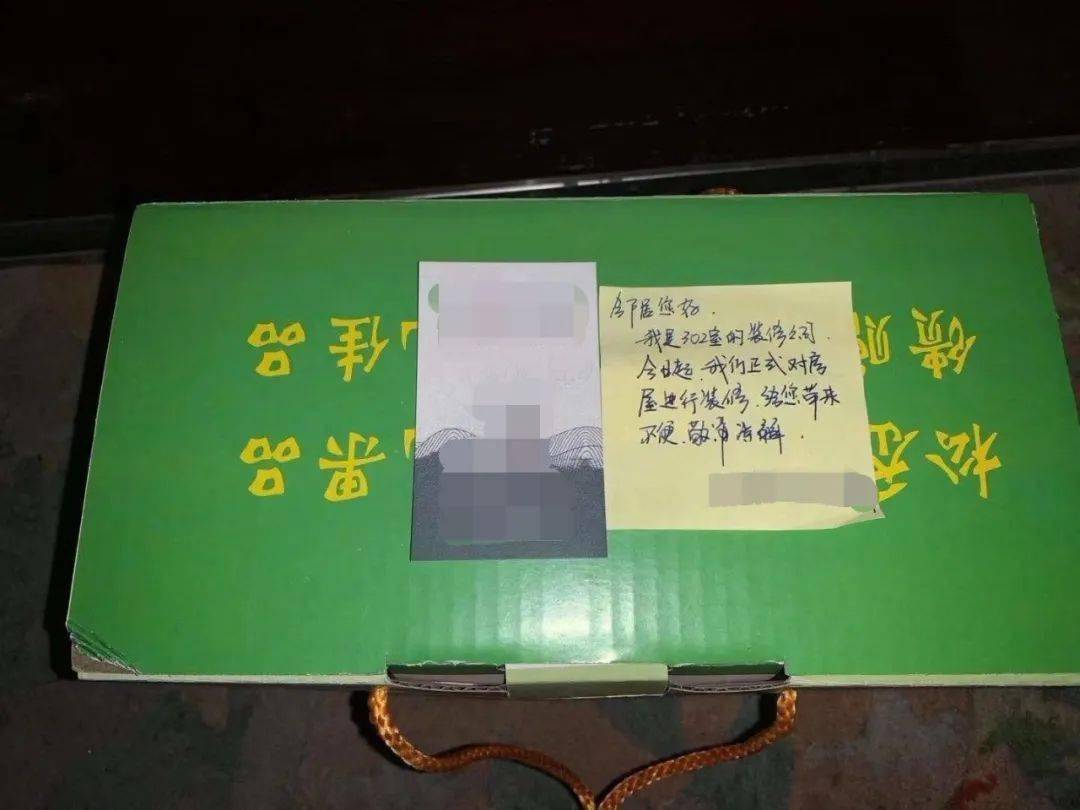 邻居您好.
我是302室的装修公司.
今日起,我们正式对房
屋进行装修,给您带来
不便,敬请谅解.
松 果品
馈赠 佳品